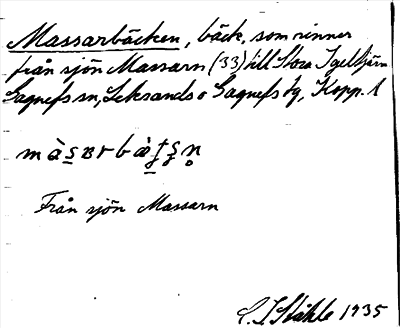 Massarbäcken, bäck, som rinner
från sjön Massarn (33) till Stora Igeltjärn
Gagnefs sn, Leksands o Gagnefs tg, Kopp. l
Från sjön Massarn
C. I Ståhle 1935